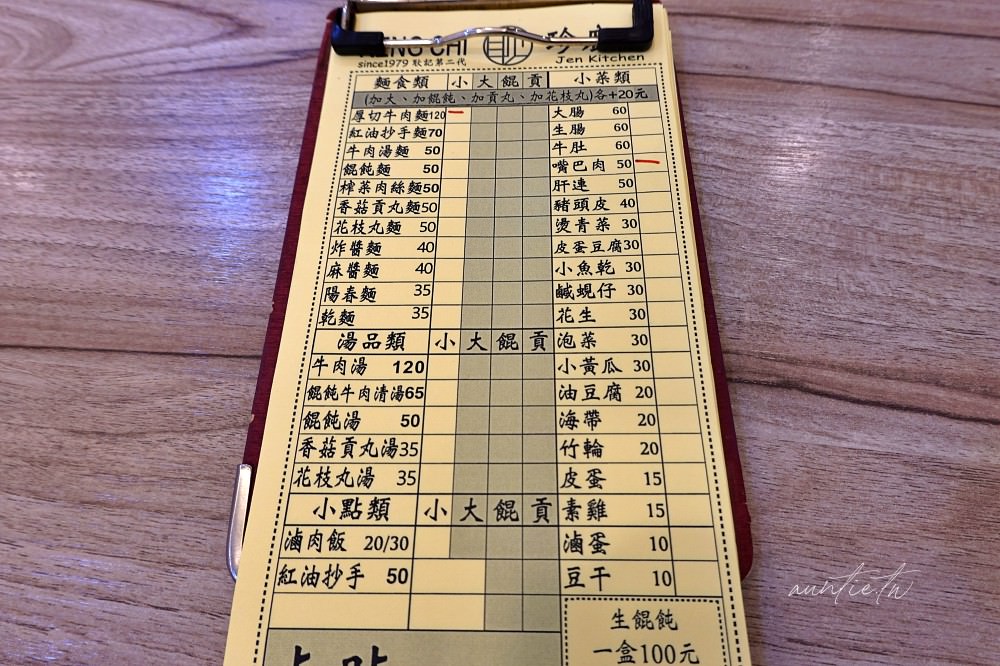 珍
since1979 耿記第二代
Jen Kitchen
麵食類 小 大 餛 貢 小菜類
(加大、加餛飩、加貢丸、加花枝丸)各+20元
厚切牛肉麵120 大腸 60
紅油抄手麵70 生腸 60
牛肉湯麵 50 牛肚 60
餛飩麵 50 嘴巴肉 50
榨菜肉絲麵50 肝連 50
香菇貢丸麵50 豬頭皮 40
花枝丸麵 50 燙青菜 30
炸醬麵 40 皮蛋豆腐30
麻醬麵 40 小魚乾 30
陽春麵 35 鹹蜆仔 30
乾麵 35 花生 30
湯品類 小 大 餛 貢 泡菜 30
牛肉湯 120 小黃瓜 30
餛飩牛肉清湯65 油豆腐 20
餛飩湯 50 海帶 20
香菇貢丸湯35 竹輪 20
花枝丸湯 35 皮蛋 15
小點類 小 大 餛 貢 素雞 15
滷肉飯 20/30 滷蛋 10
紅油抄手 50 豆干 10
生餛飩
一盒100元
auntie.tw